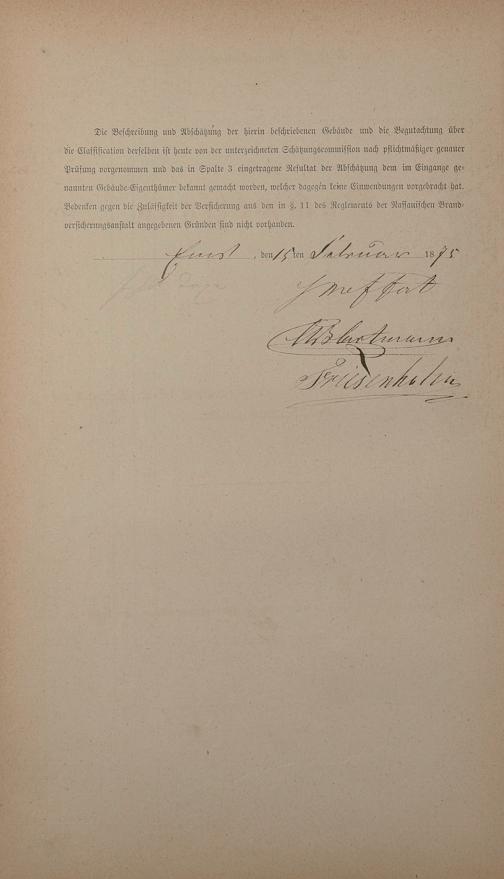 Die Beschreibung und Abschätzung der hierin beschriebenen Gebäude und die Begutachtung über
die Classification derselben ist heute von der unterzeichneten Schätzungscommission nach pflichtmäßiger genauer
Prüfung vorgenommen und das in Spalte 3 eingetragene Resultat der Abschätzung dem im Eingange ge-
nannten Gebäude-Eigenthümer bekannt gemacht worden, welcher dagegen keine Einwendungen vorgebracht hat.
Bedenken gegen die Zulässigkeit der Versicherung aus den in §. 11 des Reglements der Nassauischen Brand-
versicherungsanstalt angegebenen Gründen sind nicht vorhanden.
, den 15ten Februar 1875
Friesenhahn